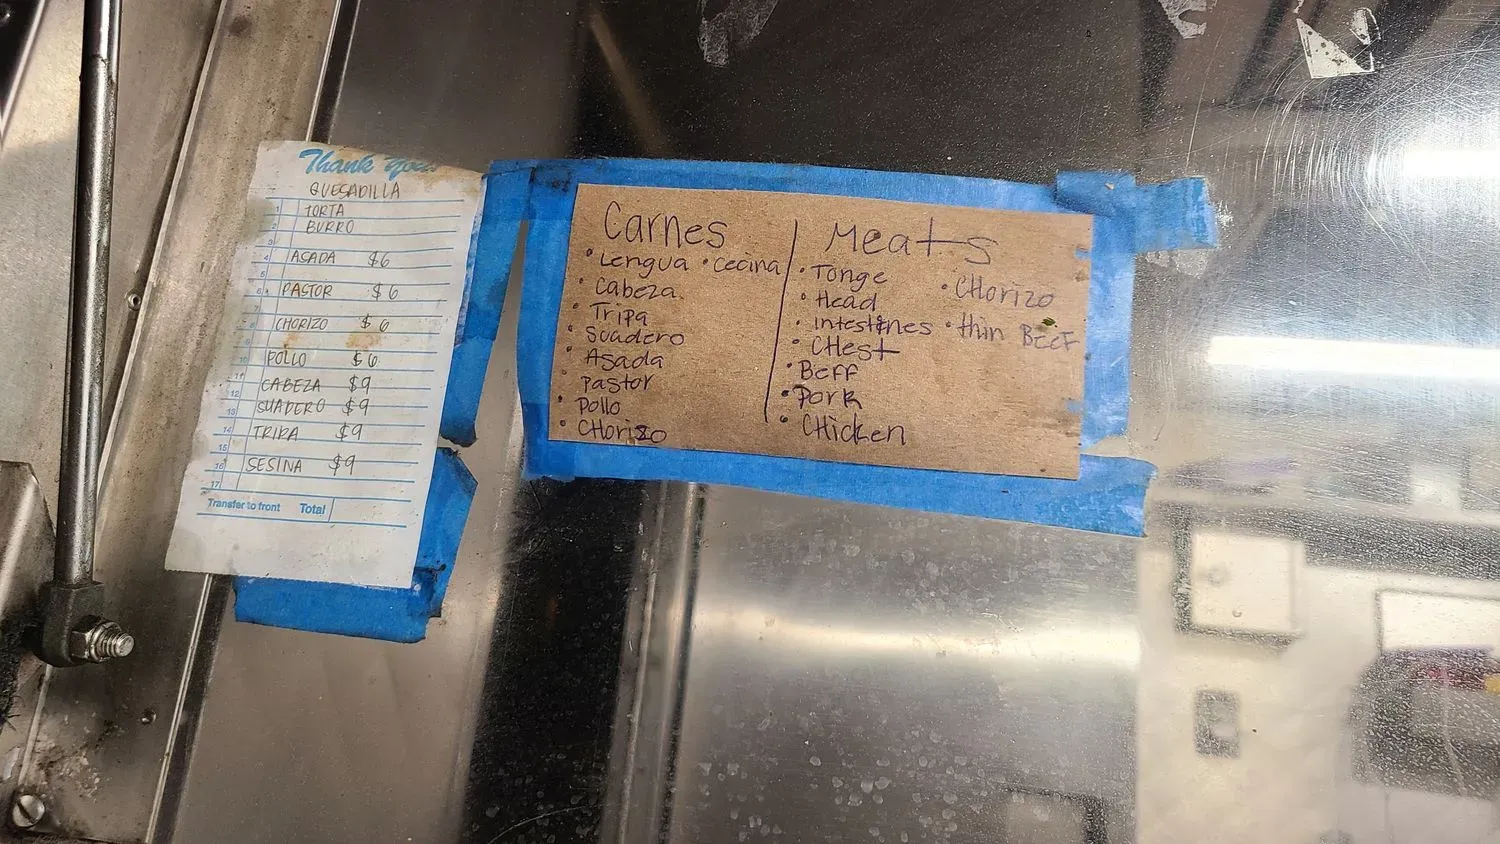 Thank you!
QUESADILLA
1 TORTA
2 BURRO
3
4 ASADA $6
5
6 PASTOR $6
7
8 CHORIZO $6
9
10 POLLO $6
11 CABEZA $9
12
13 SUADERO $9
14 TRIPA $9
15
16 SESINA $9
17
Transfer to front Total
Carnes
• Lengua • Cecina
• Cabeza
• Tripa
• Suadero
• Asada
• Pastor
• Pollo
• CHorizo
Meats
• Tonge
• Head
• intestines
• CHest
• BeFF
• Pork
• CHicken
• CHorizo
• thin BeeF